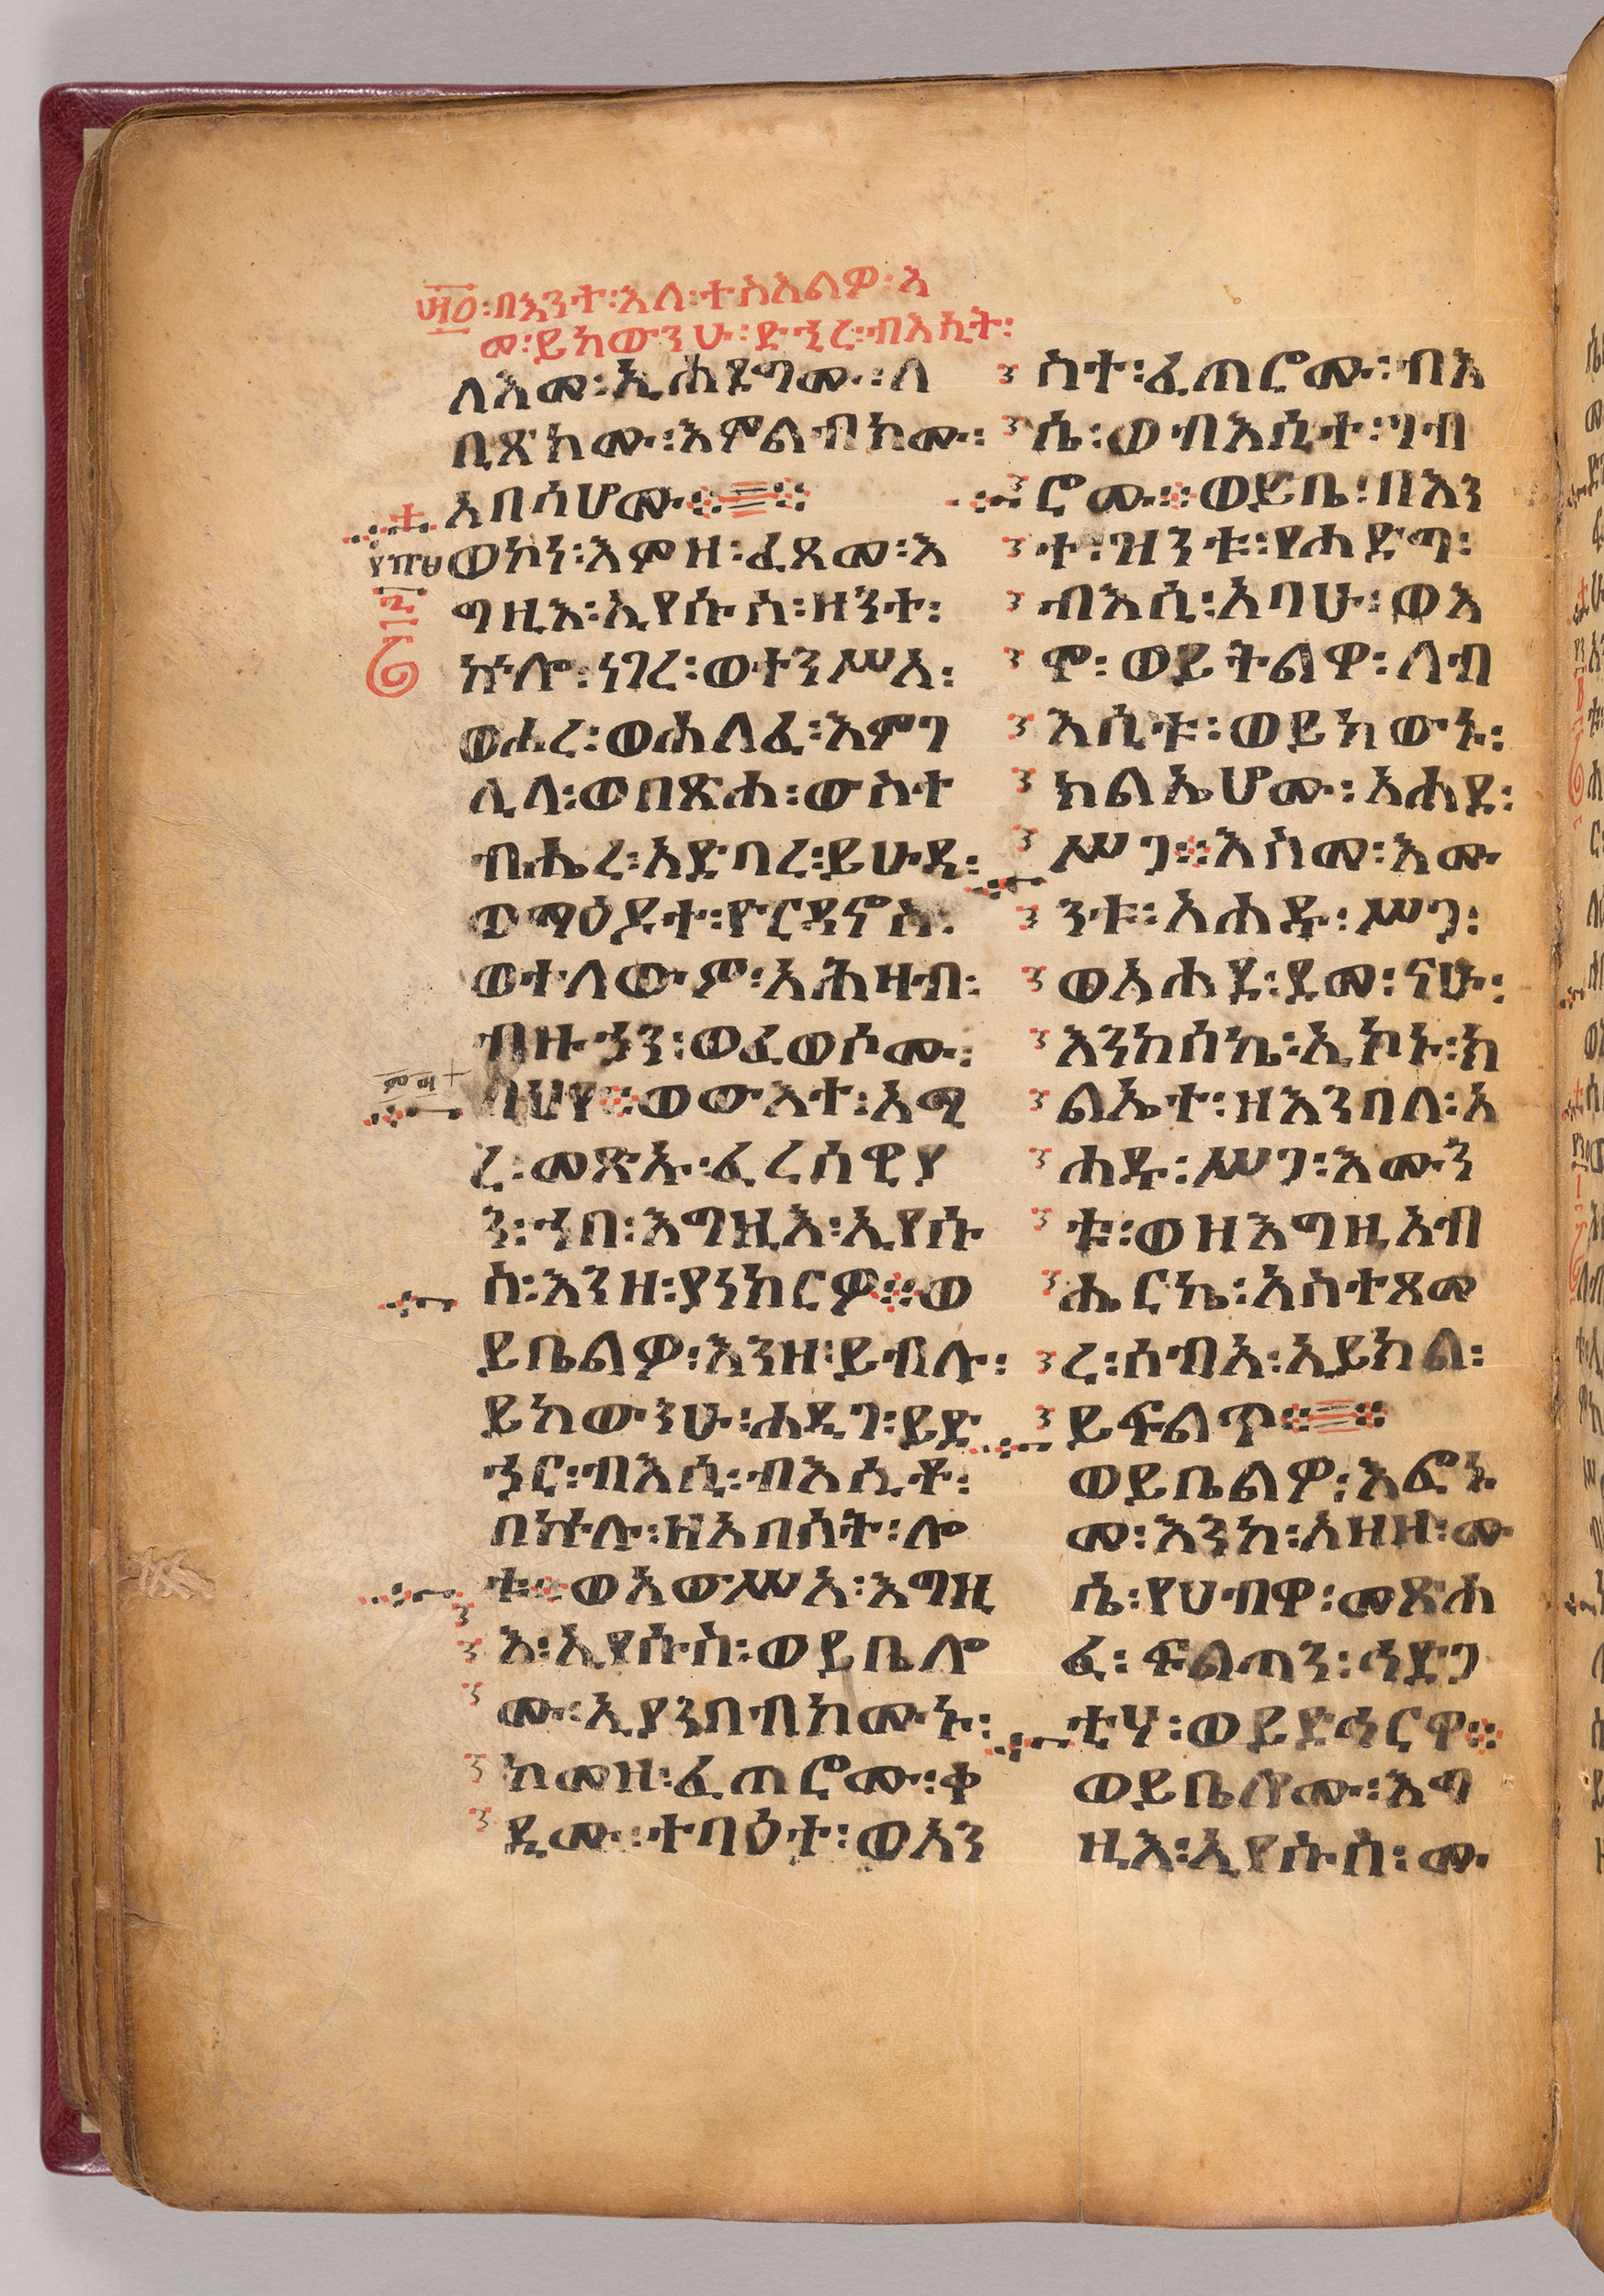 ፵፡በእንተ፡እለ፡ተስእልዎ፡እ
መ፡ይከውንሁ፡ድኂረ፡ብእሲት፡
ለእመ፡ኢሐደግሙ፡ለ
ቢጽክሙ፡እምልብክሙ፡
አበሳሆሙ፨
ወኮነ፡እምዘ፡ፈጸመ፡እ
ግዚእ፡ኢየሱስ፡ዘንተ፡
ኵሎ፡ነገረ፡ወተንሥአ፡
ወሖረ፡ወሐለፈ፡እምገ
ሊላ፡ወበጽሐ፡ውስተ
ብሔረ፡አድባረ፡ይሁዳ፡
ማዕዶተ፡ዮርዳኖስ፡
ወተለውዎ፡አሕዛብ፡
ብዙኃን፡ወፈወሶሙ፡
በህየ፨ወውእተ፡አሚ
ረ፡መጽኡ፡ፈረሰዊያ
ን፡ኀበ፡እግዚእ፡ኢየሱ
ስ፡እንዘ፡ያነክርዎ፨ወ
ይቤልዎ፡እንዘ፡ይብሉ፡
ይከውንሁ፡ሐዲገ፡ይድ
ኅር፡ብእሲ፡ብእሲቶ፡
በኵሉ፡ዘአበሰት፡ሎ
ቱ፨ወአውሥአ፡እግዚ
እ፡ኢየሱስ፡ወይቤሎ
ሙ፡ኢያንበብክሙኑ፡
ከመዘ፡ፈጠሮሙ፡ቀ
ዲሙ፡ተባዕተ፡ወአን
ስተ፡ፈጠሮሙ፡ብእ
ሴ፡ወብእሲተ፡ገብ
ሮሙ፨ወይቤ፡በእን
ተ፡ዝንቱ፡የሐድግ፡
ብእሲ፡አባሁ፡ወእ
ሞ፡ወይትልዋ፡ለብ
እሲቱ፡ወይከውኑ፡
ክልኤሆሙ፡አሐደ፡
ሥጋ፨እስመ፡እሙ
ንቱ፡አሐዱ፡ሥጋ፡
ወአሐደ፡ደመ፡ናሁ፡
እንከሰኬ፡ኢኮኑ፡ክ
ልኤተ፡ዘእንበለ፡አ
ሐዱ፡ሥጋ፡እሙን
ቱ፡ወዘእግዚአብ
ሔርኬ፡አስተጻመ
ረ፡ሰብእ፡ኢይክል፡
ይፍልጥ፨
ወይቤልዎ፡እፎኑ
መ፡እንከ፡አዘዘ፡ሙ
ሴ፡የሀብዋ፡መጽሐ
ፈ፡ፍልጣን፡ኅድጋ
ቲሃ፡ወይድኅርዋ፨
ወይቤሎሙ፡እግ
ዚእ፡ኢየሱስ፡ሙ